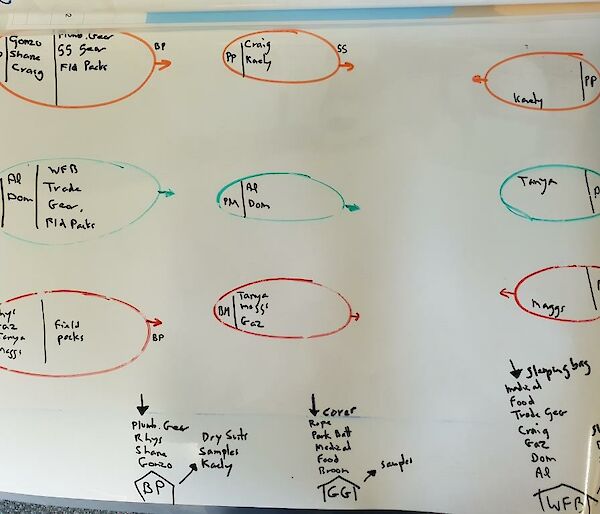 2
Gonzo
Shane
Craig
Plumb. Gear
SS Gear
Fld Packs
BP
PP
Craig
Kaely
SS
Kaely
PP
Al
Dom
WFB
Trade
Gear,
Fld Packs
PM
Al
Dom
Tanya
Maggs
Field
packs
BP
BM
Tanya
Maggs
Gaz
Maggs
Plumb. Gear
Rhys
Shane
Gonzo
BP
Dry Suits
Samples
Kaely
cores
Rope
Park Batt
Medical
Food
Broom
GG
samples
sleeping bag
medical
Food
Trade Gear
Craig
Gaz
Dom
Al
WFB